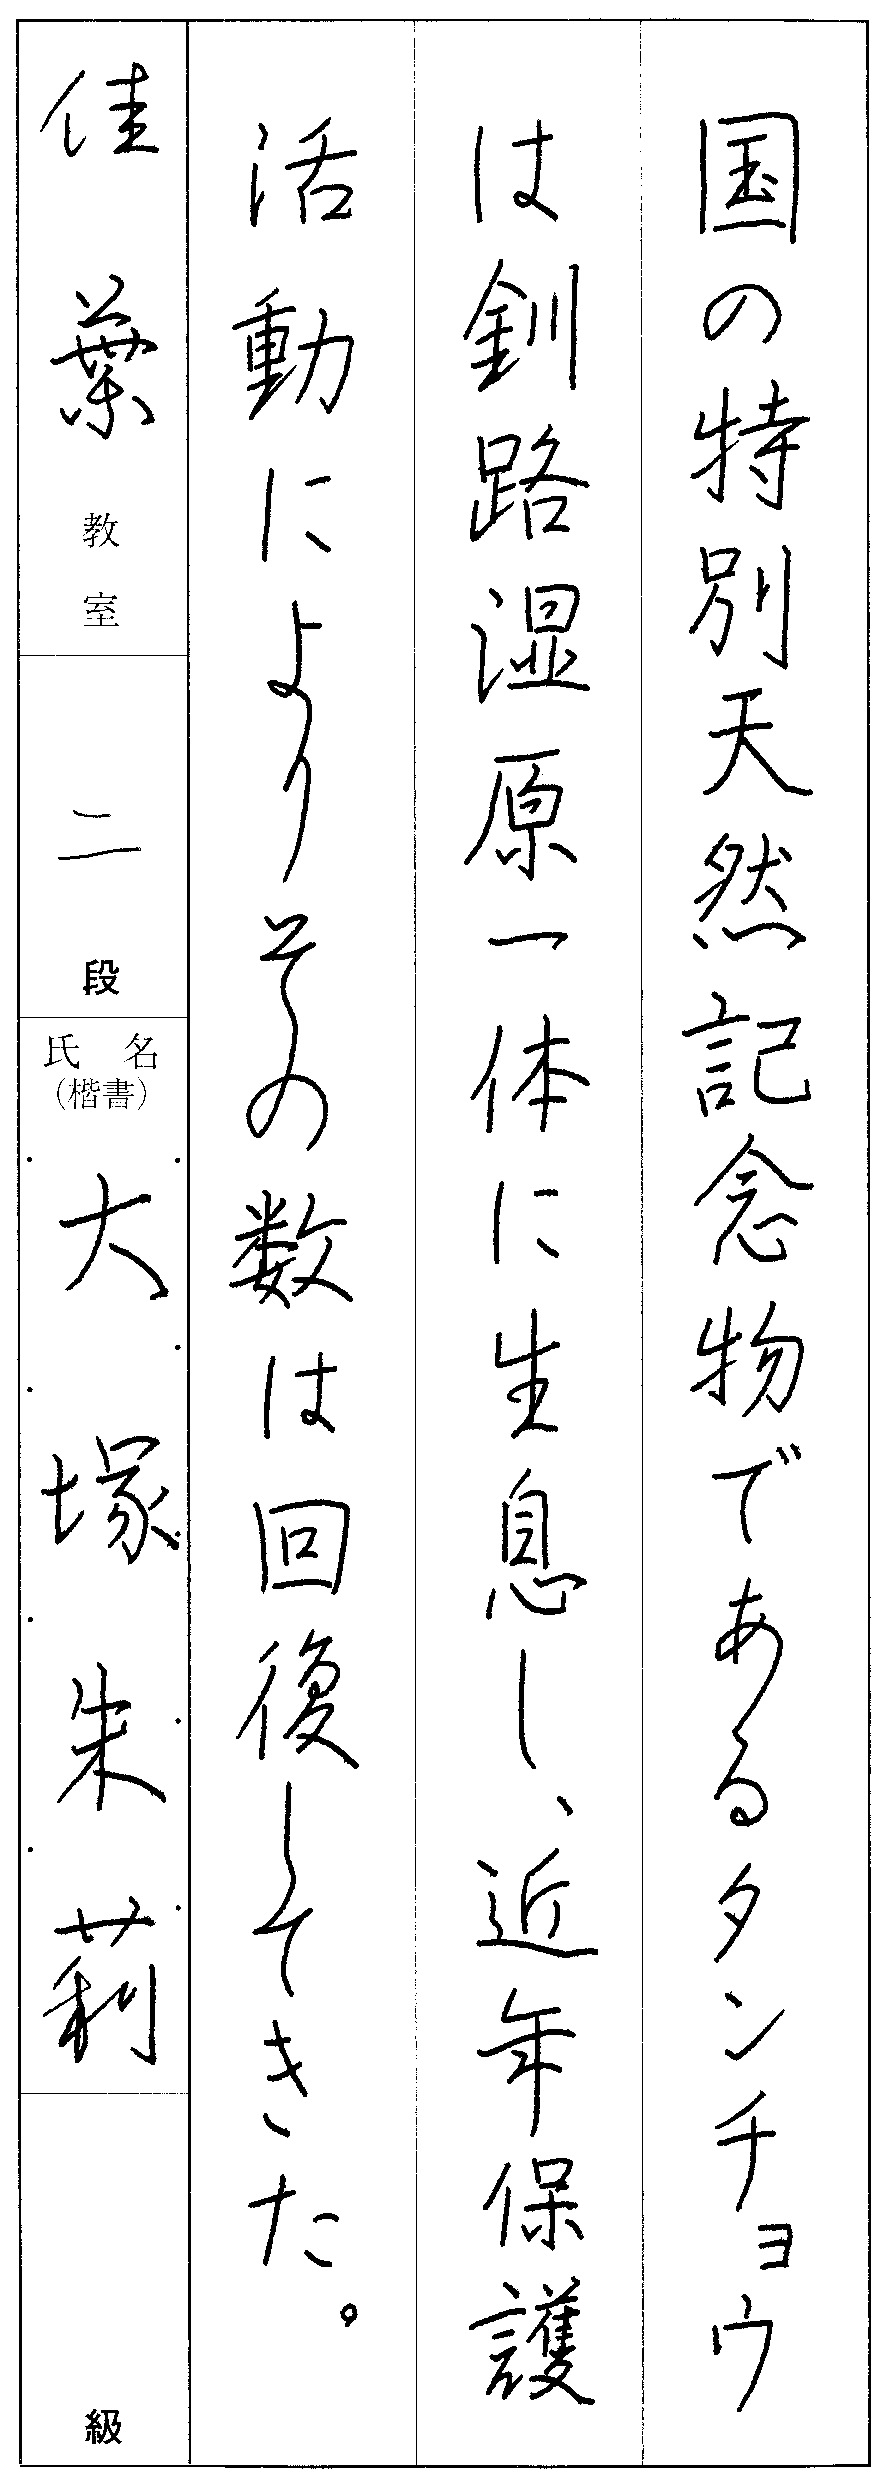 国の特別天然記念物であるタンチョウ
は釧路湿原一体に生息し、近年保護
活動によりその数は回復してきた。
佳葉教室
二段
氏名
(楷書)
大塚朱莉
級